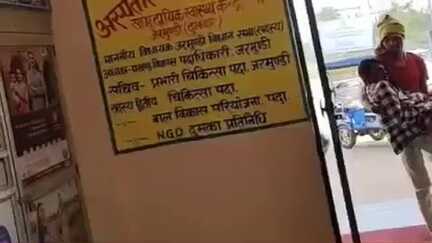 अस्पताल
सामुदायिक स्वास्थ्य केन्द्र
जरमुण्डी (दुमका)
माननीय विधायक जरमुण्डी विधान सभा (सदस्य)
अध्यक्ष-प्रखण्ड विकास पदाधिकारी, जरमुण्डी
सचिव- प्रभारी चिकित्सा पदा, जरमुण्डी
सदस्य द्वितीय चिकित्सा पदा,
बाल विकास परियोजना, पदा,
N.G.O दुमका प्रतिनिधि